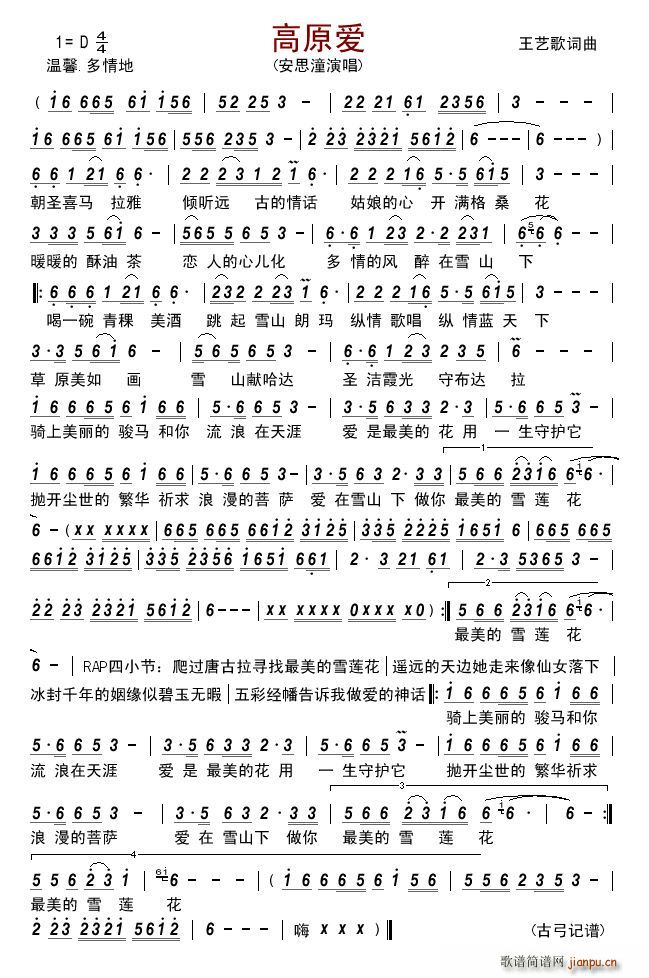 高原爱
1= D 4/4
王艺歌词曲
温馨.多情地
(安思潼演唱)
( 1 6 6 6 5 6 1 1 5 6 | 5 2 2 5 3 - | 2 2 2 2 1 6 1 2 3 5 6 | 3 - - - |
1 6 6 6 5 6 1 1 5 6 | 5 5 6 2 3 5 3 - | 2 2 3 2 3 2 1 5 6 1 2 | 6 - - - | 6 - - - )
6 6 1 2 1 6 6 · | 2 2 2 3 1 2 1 6 · | 2 2 2 1 6 5 · 5 6 1 5 | 3 - - - |
朝圣喜马 拉雅 倾听远 古的情话 姑娘的心 开 满格 桑 花
3 3 3 5 6 1 6 - | 5 6 5 5 6 5 3 - | 6 · 6 1 2 3 2 · 2 2 3 1 | 6 6 6 - - |
暖暖的 酥油 茶 恋 人的心儿化 多 情的风 醉 在雪 山 下
‖: 6 6 6 1 2 1 6 6 · | 2 3 2 2 2 3 3 - | 2 2 2 1 6 5 · 5 6 1 5 | 3 - - - |
喝一碗 青稞 美酒 跳 起 雪山 朗 玛 纵情 歌唱 纵 情蓝 天 下
3 · 3 5 6 1 6 - | 5 6 5 5 6 5 3 - | 6 · 6 1 2 3 2 3 5 | 6 - - - |
草 原美如 画 雪 山献哈达 圣 洁霞光 守布达 拉
1 6 6 6 5 6 1 6 6 | 5 · 6 6 5 3 - | 3 · 5 6 5 6 3 3 2 · 3 | 5 · 6 6 5 3 - |
骑上美丽的 骏马 和你 流 浪 在天涯 爱 是最美的 花 用 一 生守护它
1
1 6 6 6 5 6 1 6 6 | 5 · 6 6 5 3 - | 3 · 5 6 6 3 2 2 | 5 6 6 2 3 1 6 6 6 · |
抛开尘世的 繁华 祈求 浪 漫的菩 萨 爱 在雪山 下 做你 最美的 雪 莲 花
6 - ( x x x x x x | 6 6 5 6 6 5 6 6 1 2 3 1 2 5 | 3 3 5 2 2 2 5 1 6 5 1 6 | 6 6 5 6 6 5
6 6 1 2 3 1 2 5 | 3 3 5 2 3 5 6 1 6 5 1 6 6 1 | 2 · 3 2 1 6 1 | 2 · 3 5 3 6 5 3 - |
2
2 2 3 2 3 2 1 5 6 1 2 | 6 - - - | x x x x x x 0 x x x x 0 ) :‖ 5 6 6 2 3 1 6 6 6 · |
最美的 雪 莲 花
6 - | RAP四小节: 爬过唐古拉寻找最美的雪莲花 | 遥远的天边她走来像仙女落下 |
冰封千年的姻缘似碧玉无暇 | 五彩经幡告诉我做爱的神话 ‖: 1 6 6 6 5 6 1 6 6 |
骑上美丽的 骏马和你
5 · 6 6 5 3 - | 3 · 5 6 5 6 3 3 2 · 3 | 5 · 6 6 5 3 - | 1 6 6 6 5 6 1 6 6 |
流 浪在天涯 爱 是 最美的花 用 一 生守护它 抛开尘世的 繁华祈求
3
5 · 6 6 5 3 - | 3 · 5 6 6 3 2 2 | 5 6 6 2 3 1 6 6 6 · | 6 - :‖
浪 漫的菩萨 爱 在 雪山下 做你 最美的 雪 莲 花
4
5 5 6 2 3 1 | 6 - - - | ( 1 6 6 6 5 6 1 1 5 6 | 5 5 6 2 3 5 3 - |
最美的 雪 莲 花
2 2 3 2 3 2 1 5 6 1 2 | 6 - - - | 嗨 x x x ) ‖
(古弓记谱)
歌谱简谱网
jianpu.cn